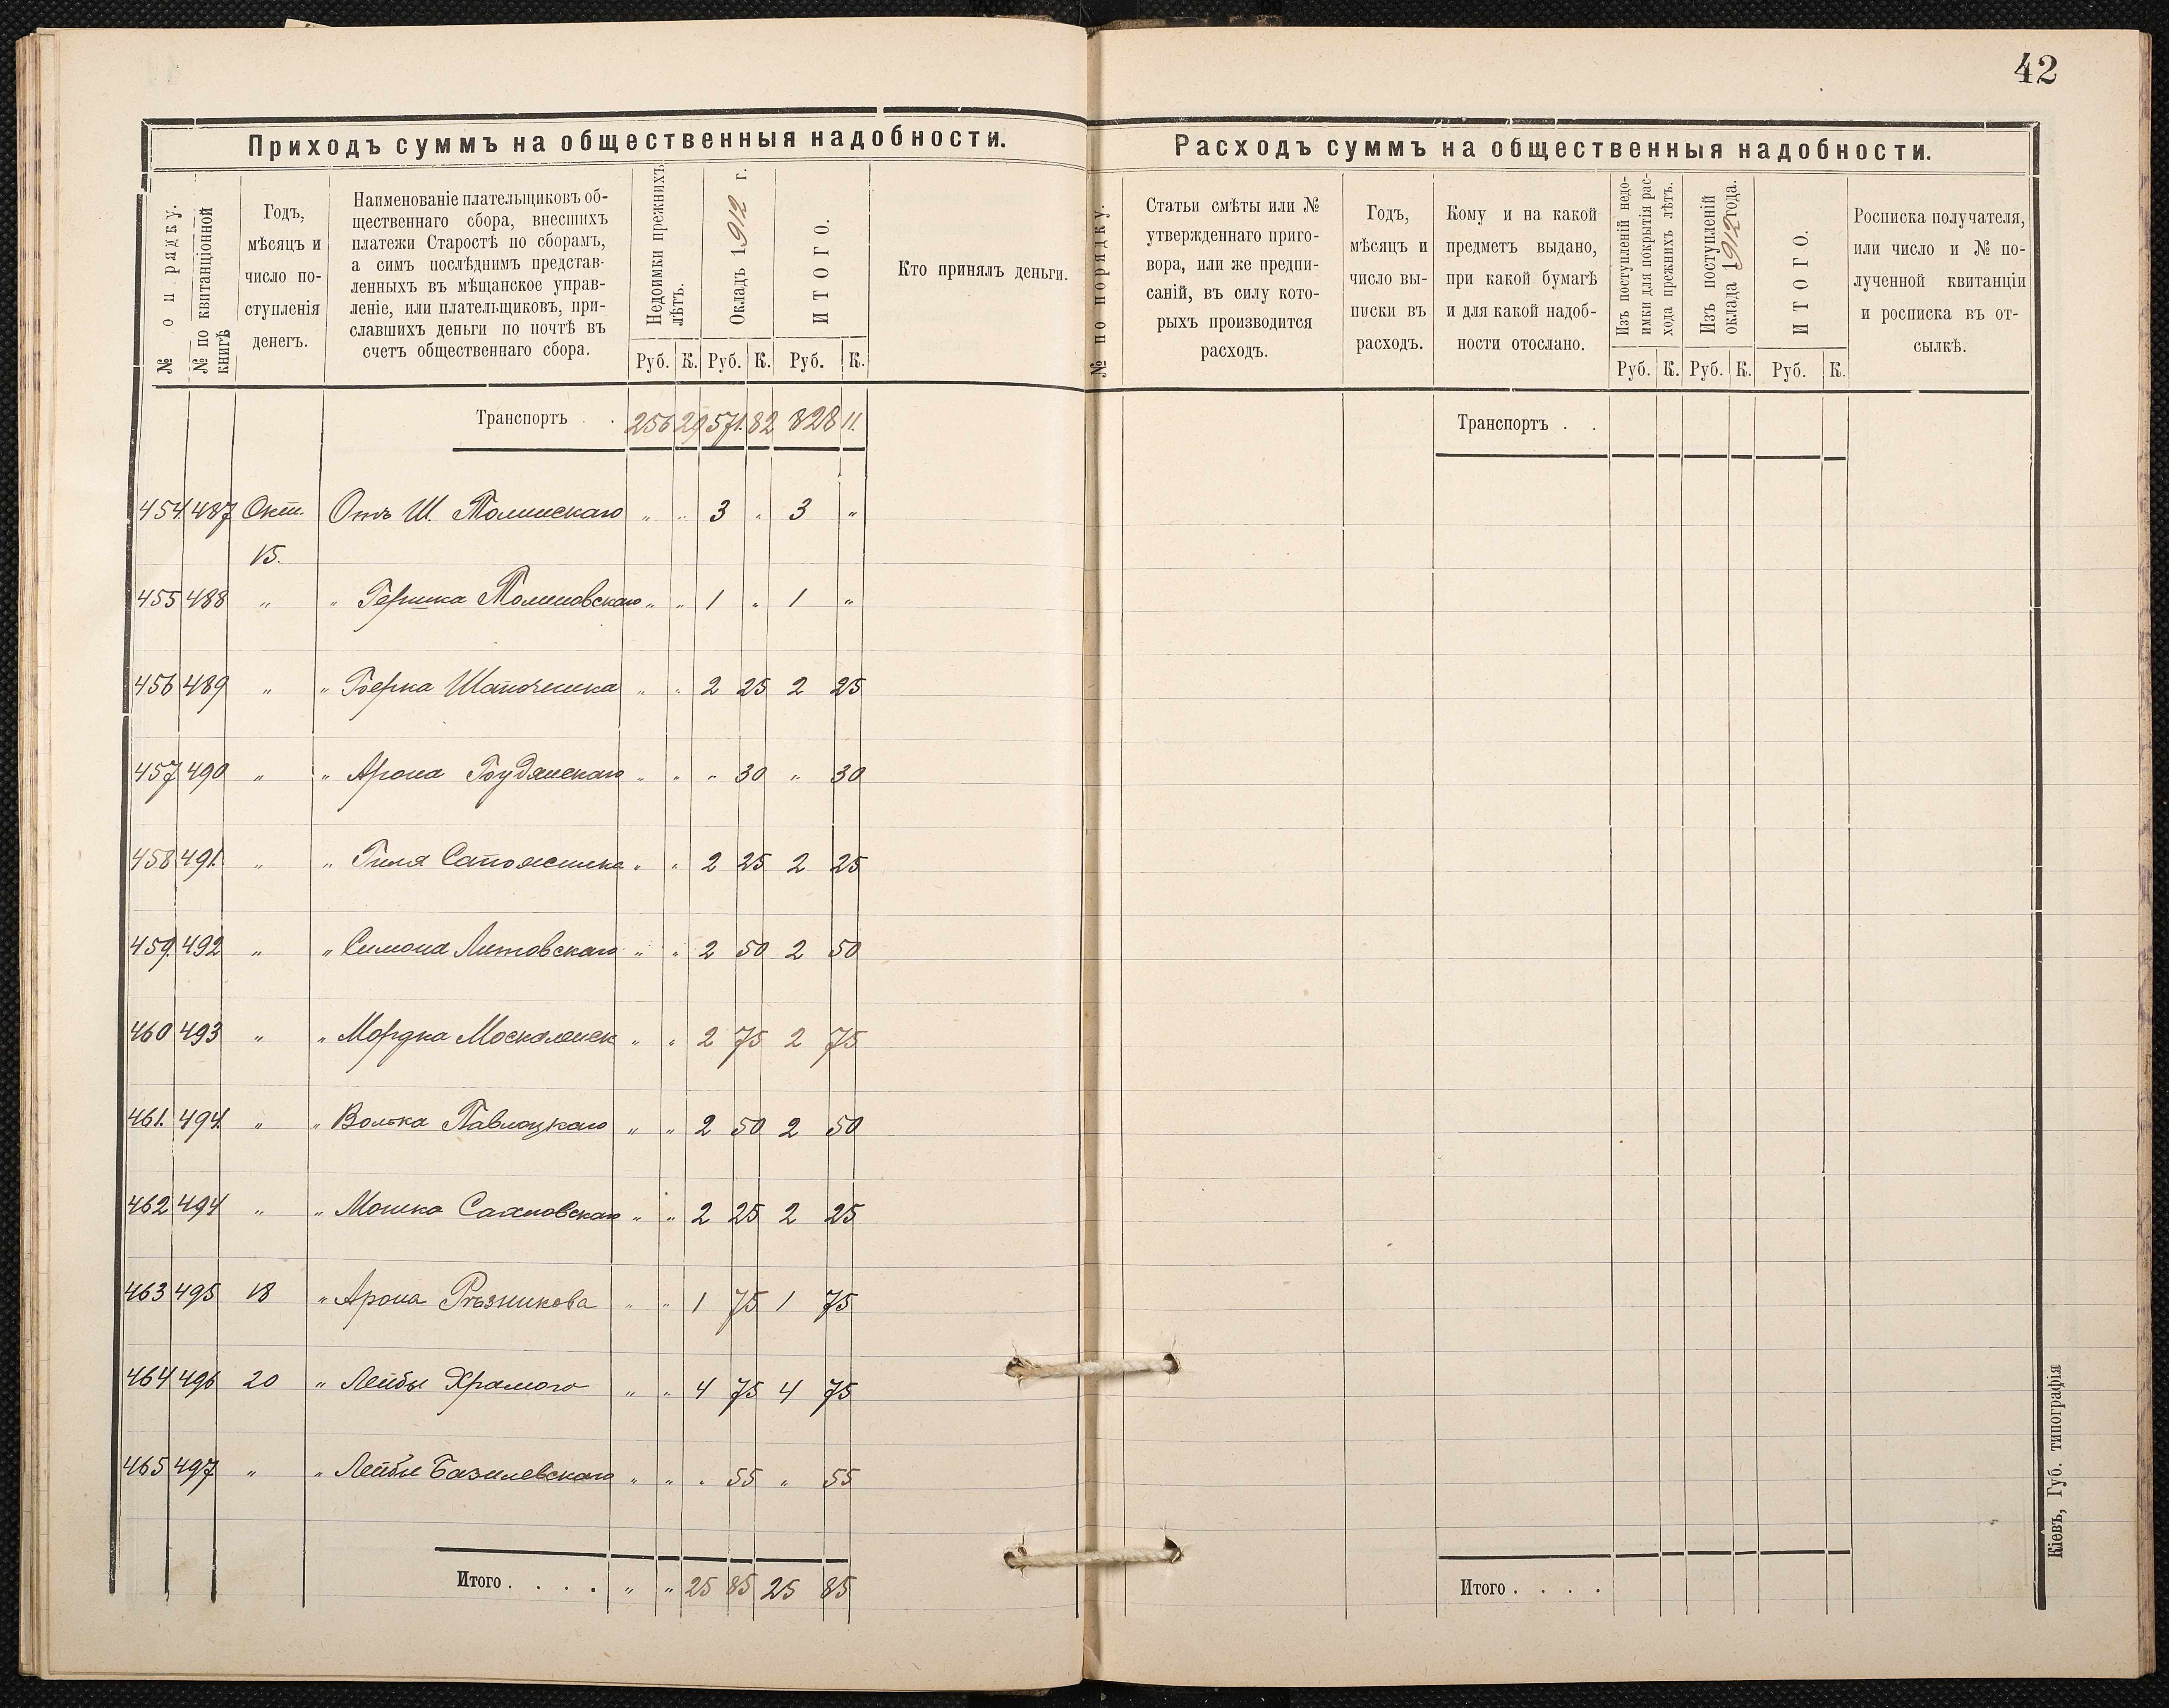 42
Приходъ суммъ на общественныя надобности.
№ по рядку.
№ по квитанціонной книгѣ
Годъ, мѣсяцъ и число поступленія денегъ.
Наименованіе плательщиковъ об-
щественнаго сбора, внесшихъ
платежи Старостѣ по сборамъ,
а симъ послѣднимъ представ-
ленныхъ въ мѣщанское управ-
леніе, или плательщиковъ, при-
славшихъ деньги по почтѣ въ
счетъ общественнаго сбора.
Недоимки прежнихъ лѣтъ.
Окладъ 1912 г.
ИТОГО.
Кто принялъ деньги.
Руб. К. Руб. К. Руб. К.
Транспортъ . . 256 29 571. 82 828 11.
454. 487 Окт. Отъ Ш. " " 3 " 3 "
15.
455 488 " " Гершка " " 1 " 1 "
456 489 " " Берка Шапочника " " 2 25 2 25
457 490 " " Арона " " " 30 " 30
458 491. " " Гиля Сапожника " " 2 25 2 25
459. 492 " " Симона Литовскаго " " 2 50 2 50
460 493 " " Мордка Москаленск " " 2 75 2 75
461. 494. " " Волька Паволоцкаго " " 2 50 2 50
462 494 " " Мошка Сахновскаго " " 2 25 2 25
463 495 18 " Арона Рѣзникова " " 1 75 1 75
464 496 20 " Лейбы Храмого " " 4 75 4 75
465 497 " " Лейбы Базилевскаго " " " 55 " 55
Итого . . . . " " 25 85 25 85
Расходъ суммъ на общественныя надобности.
№ по порядку.
Статьи смѣты или №
утвержденнаго приго-
вора, или же предпи-
саній, въ силу кото-
рыхъ производится
расходъ.
Годъ,
мѣсяцъ и
число вы-
писки въ
расходъ.
Кому и на какой
предметъ выдано,
при какой бумагѣ
и для какой надоб-
ности отослано.
Изъ поступленій недо-
имки для покрытія рас-
хода прежнихъ лѣтъ.
Изъ поступленій
оклада 1912 года.
ИТОГО.
Росписка получателя,
или число и № по-
лученной квитанціи
и росписка въ от-
сылкѣ.
Руб. К. Руб. К. Руб. К.
Транспортъ . .
Итого . . . .
Кіевъ, Губ. типографія